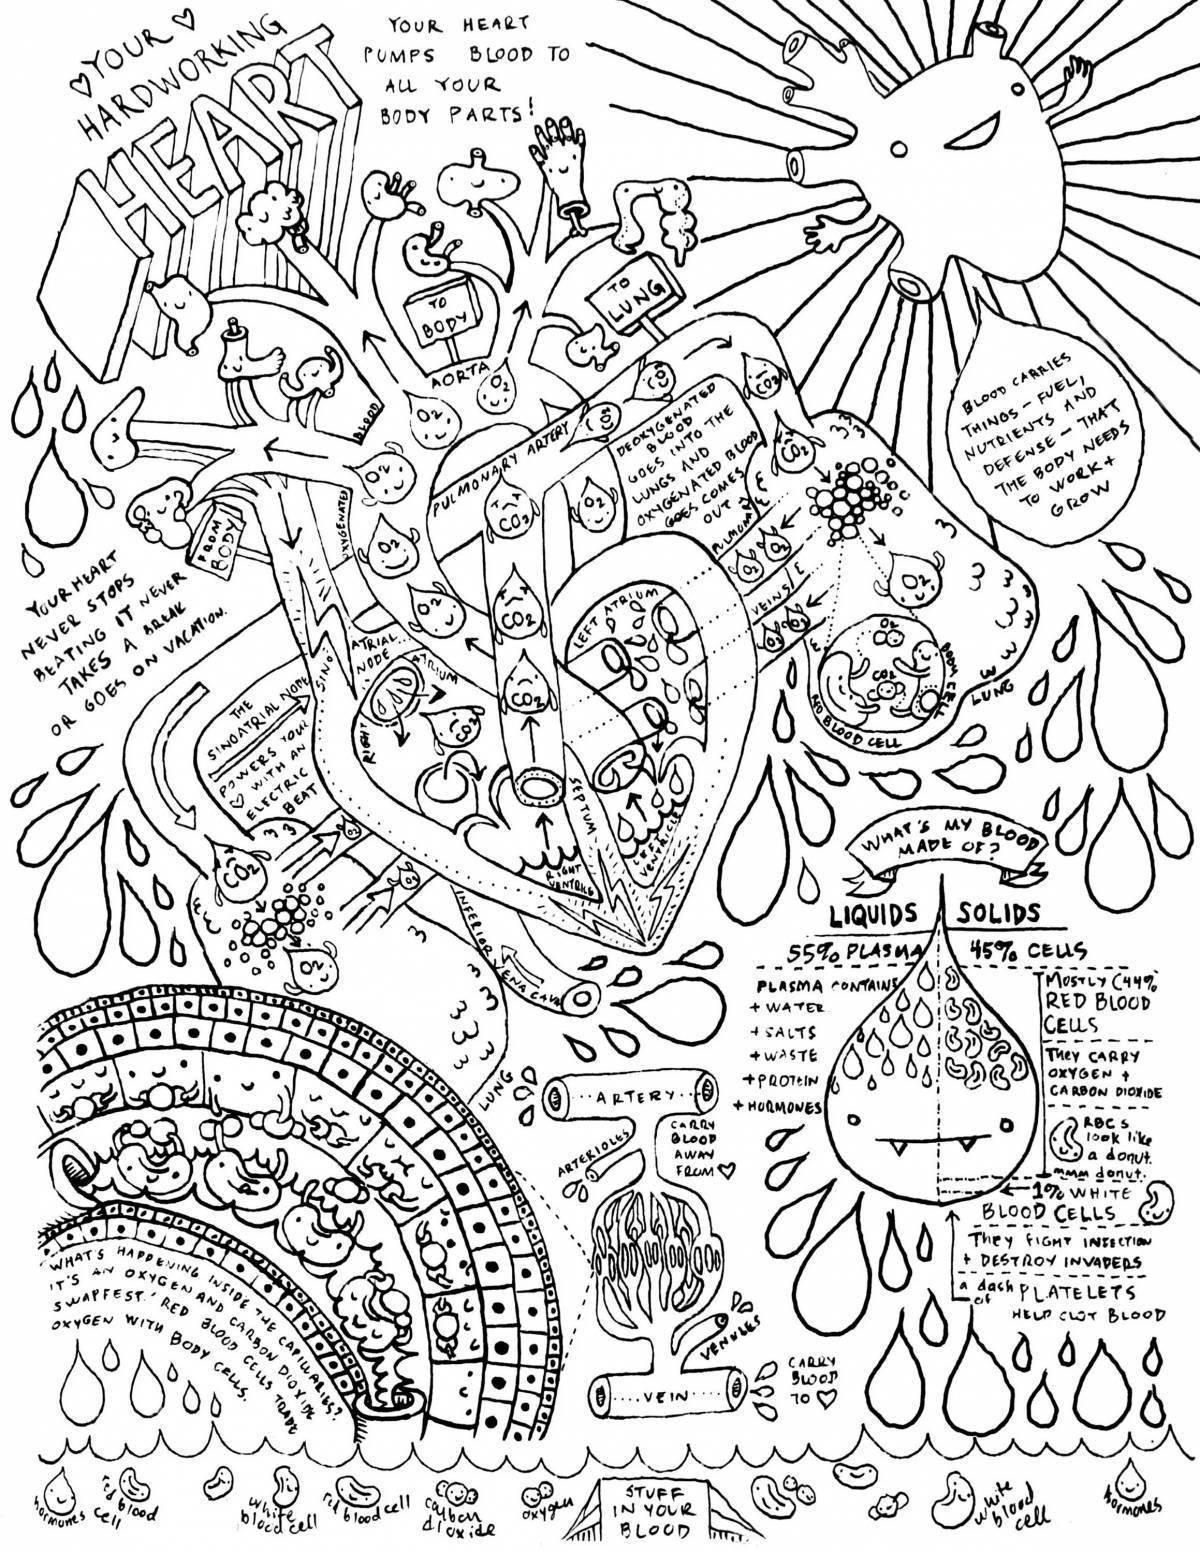 YOUR
HARDWORKING
HEART
YOUR HEART
PUMPS BLOOD TO
ALL YOUR
BODY PARTS!
TO
BODY
TO
LUNG
AORTA
BLOOD
OXYGENATED
FROM
BODY
PULMONARY ARTERY
DEOXYGENATED
BLOOD
GOES INTO THE
LUNGS AND
OXYGENATED BLOOD
GOES COMES
OUT
O2
O2
O2
O2
O2
O2
O2
CO2
CO2
CO2
CO2
CO2
CO2
CO2
CO2
BLOOD CARRIES
THINGS - FUEL,
NUTRIENTS AND
DEFENSE - THAT
THE BODY NEEDS
TO WORK +
GROW
YOUR HEART
NEVER STOPS
BEATING IT NEVER
TAKES A BREAK
OR GOES ON VACATION.
THE
SINOATRIAL NODE
POWERS YOUR
WITH AN
ELECTRIC
BEAT
SINO
ATRIAL
NODE
RIGHT
ATRIUM
LEFT ATRIUM
SEPTUM
RIGHT
VENTRICLE
LEFT
VENTRICLE
O2
O2
O2
O2
O2
O2
CO2
BODY CELL
LUNG
CO2
O2
O2
O2
INFERIOR VENA CAVA
LUNG
WHAT'S MY BLOOD
MADE OF?
LIQUIDS
SOLIDS
55% PLASMA
45% CELLS
PLASMA CONTAINS
+ WATER
+ SALTS
+ WASTE
+ PROTEIN
+ HORMONES
MOSTLY (44%
RED BLOOD
CELLS
THEY CARRY
OXYGEN +
CARBON DIOXIDE
RBCs
look like
a donut.
mmm donut.
1% WHITE
BLOOD CELLS
They FIGHT INFECTION
+ DESTROY INVADERS
a dash
of
PLATELETS
HELP CLOT BLOOD
ARTERY
ARTERIOLES
CARRY
BLOOD
AWAY
FROM
VENULES
VEIN
CARRY
BLOOD
TO
WHAT'S HAPPENING INSIDE THE CAPILLARIES?
IT'S AN OXYGEN AND CARBON DIOXIDE
SWAPFEST! RED BLOOD CELLS TRADE
OXYGEN WITH BODY CELLS.
hormones
red blood
cell
white
blood cell
red blood cell
carbon
dioxide
oxygen
STUFF
IN YOUR
BLOOD
white
blood
cell
hormones